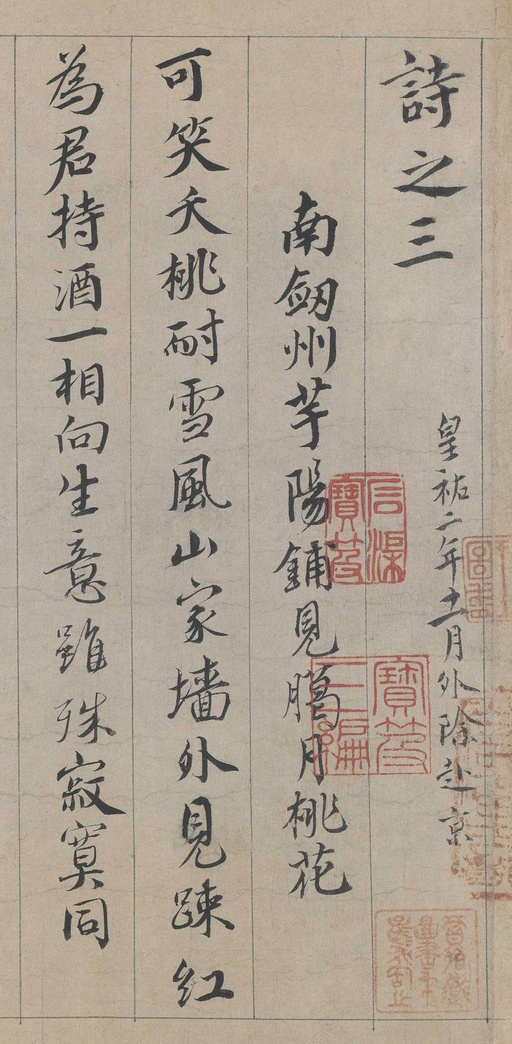 詩之三
皇祐二年十一月外除赴京
南劔州芋陽鋪見臈月桃花
可笑夭桃耐雪風山家墻外見踈紅
為君持酒一相向生意雖殊寂寞同
寶笈
三編